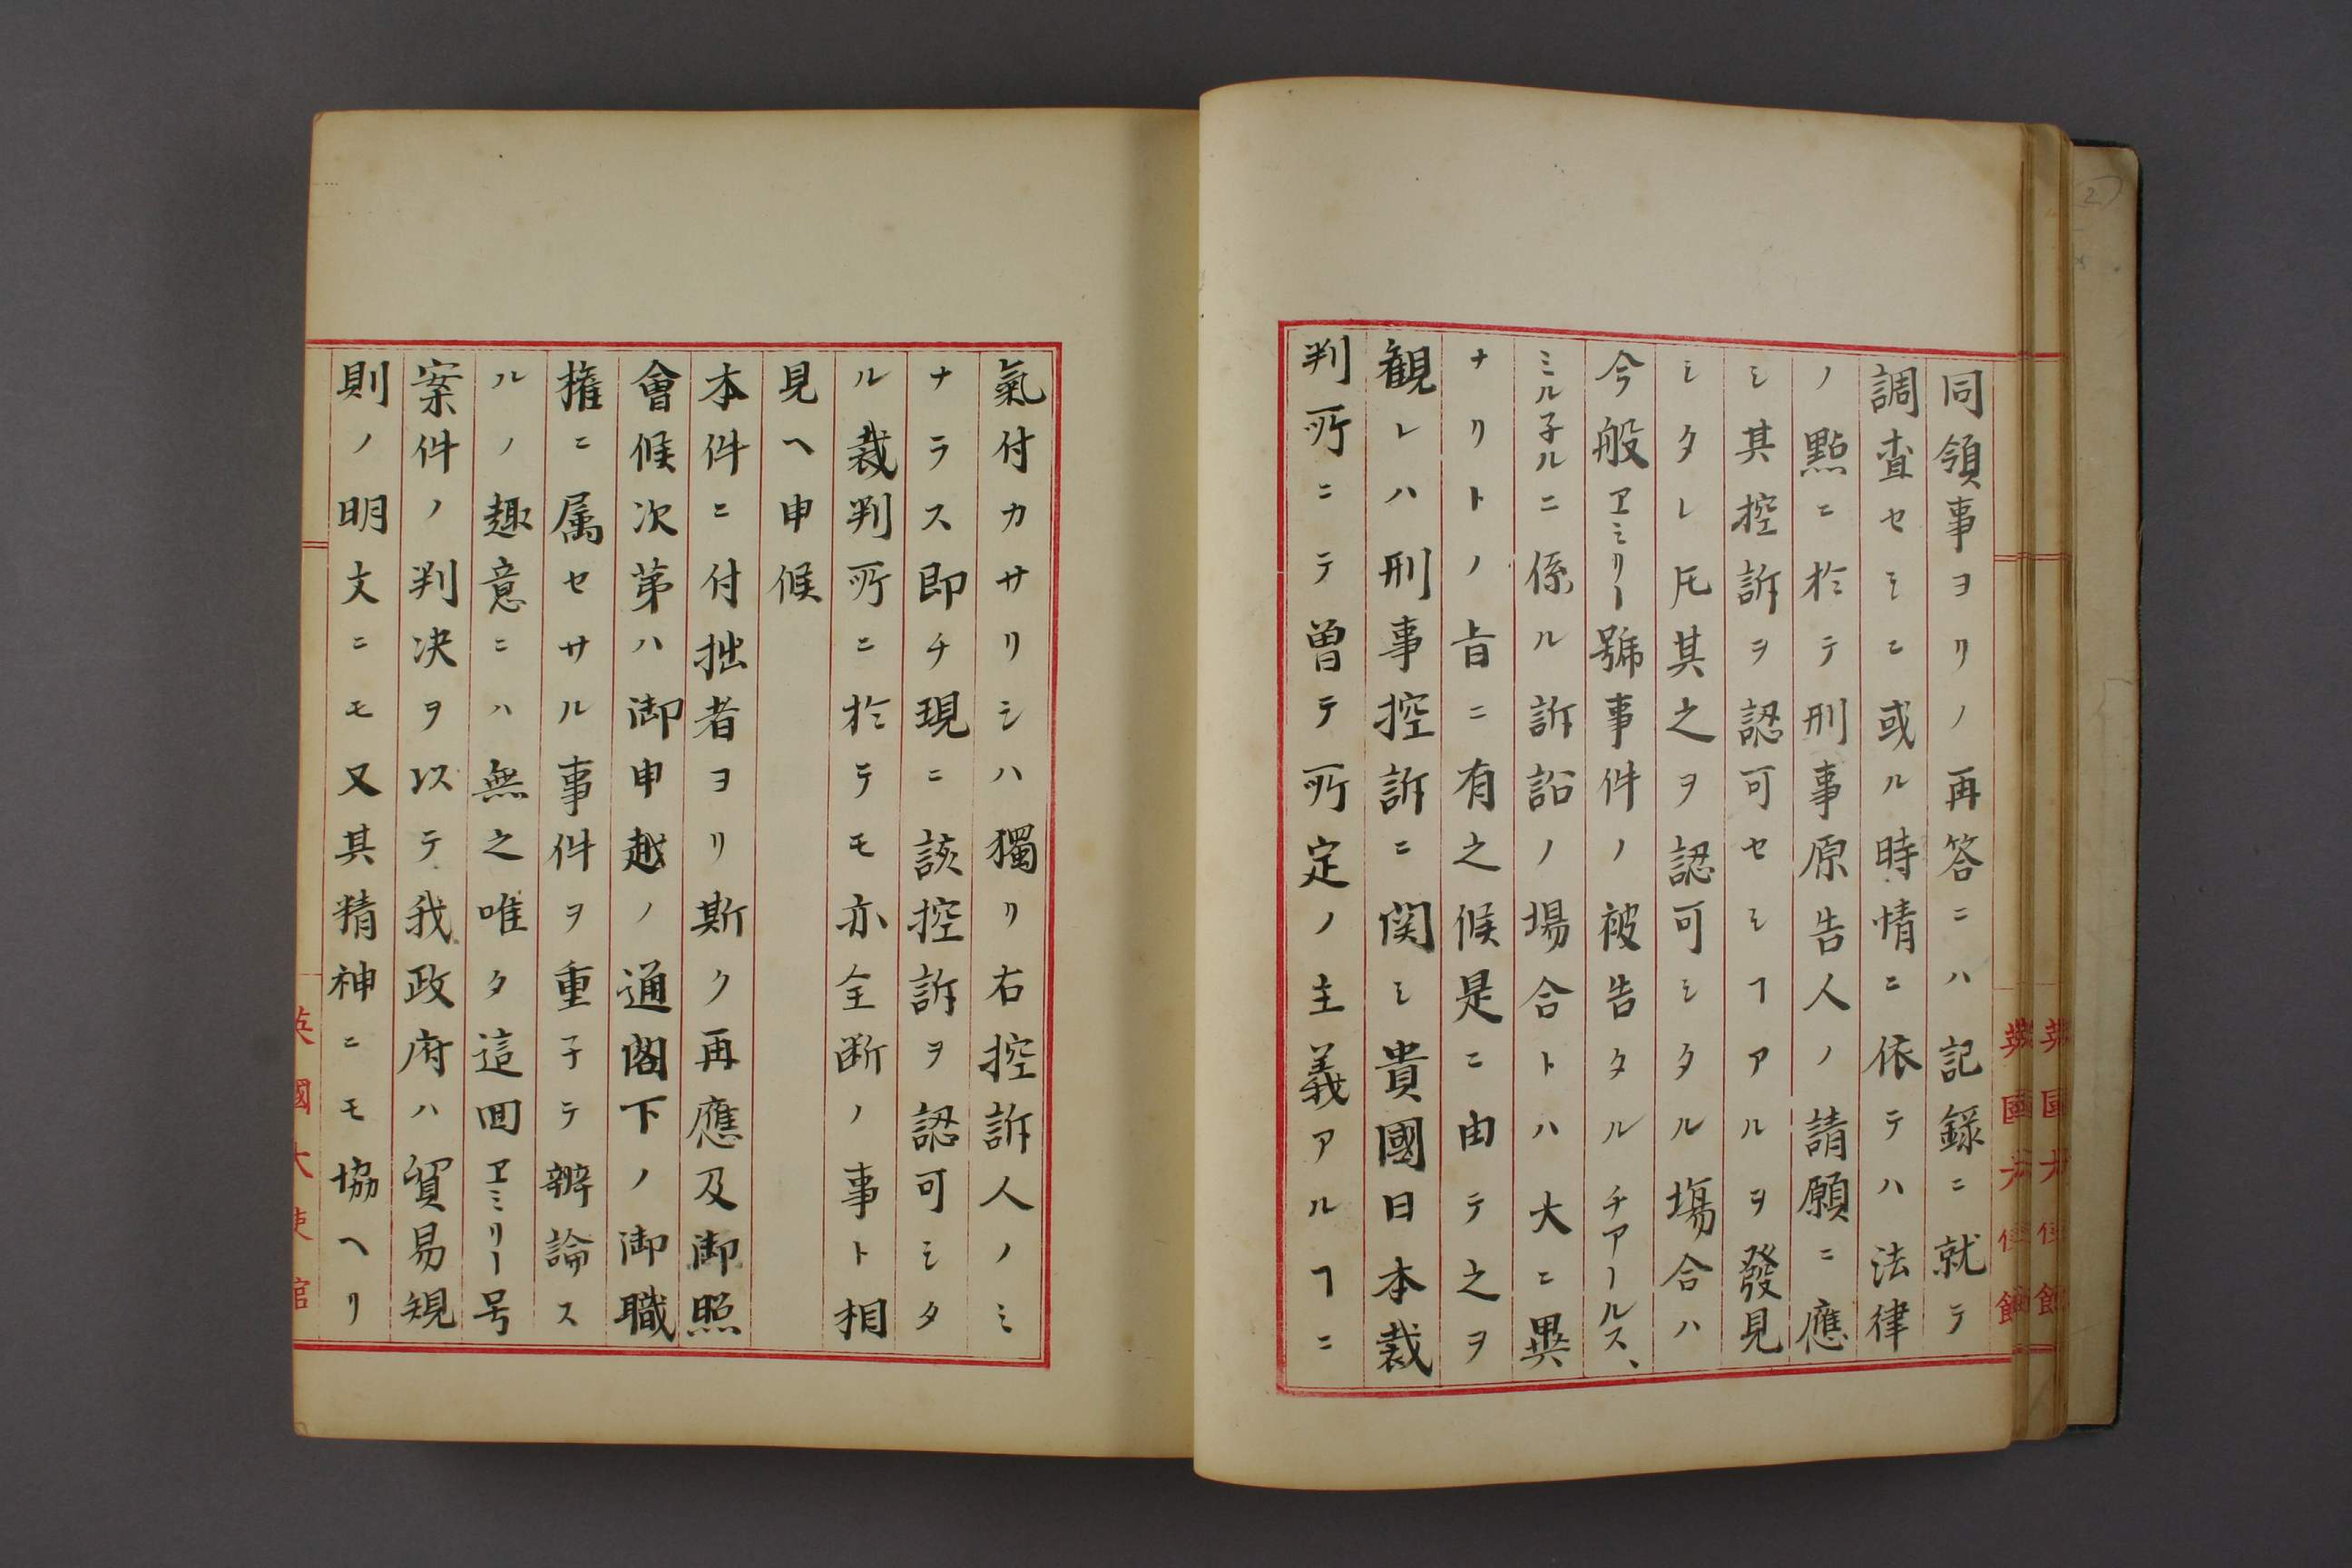 同領事ヨリノ再答ニハ記録ニ就テ
調査セシニ或ル時情ニ依テハ法律
ノ點ニ於テ刑事原告人ノ請願ニ應
シ其控訴ヲ認可セシヿアルヲ發見
シタレ𪜈其之ヲ認可シタル塲合ハ
今般ヱミリー號事件ノ被告タルチアールス、
ミル子ルニ係ル訴訟ノ場合トハ大ニ異
ナリトノ旨ニ有之候是ニ由テ之ヲ
観レハ刑事控訴ニ関シ貴國日本裁
判所ニテ曽テ所定ノ主義アルヿニ
氣付カサリシハ獨リ右控訴人ノミ
ナラス即チ現ニ該控訴ヲ認可シタ
ル裁判所ニ於テモ亦全断ノ事ト相
見ヘ申候
本件ニ付拙者ヨリ斯ク再應及御照
會候次第ハ御申越ノ通閣下ノ御職
権ニ属セサル事件ヲ重子テ辨論ス
ルノ趣意ニハ無之唯タ這回ヱミリー号
案件ノ判决ヲ以テ我政府ハ貿易規
則ノ明文ニモ又其精神ニモ協ヘリ
英國大使館
英國大使館
英國大使館